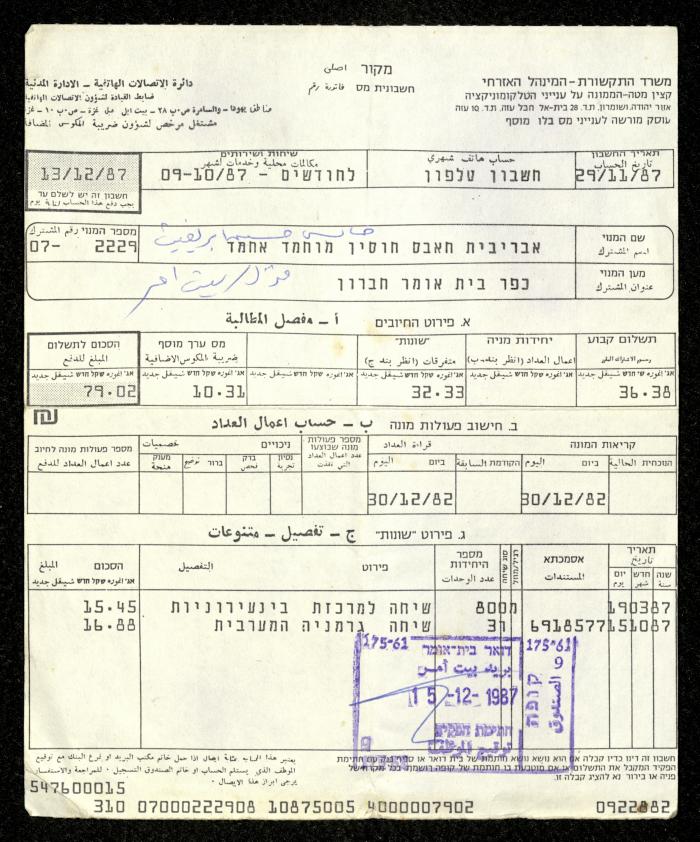 מקור اصلي
משרד התקשורת - המינהל האזרחי
קצין מטה-הממונה על ענייני הטלקומוניקציה
אזור יהודה ושומרון, ת.ד. 28 בית-אל חבל עזה, ת.ד. 10 עזה
עוסק מורשה לענייני מס בלו מוסף
חשבונית מס فاتورة رقم
دائرة الاتصالات الهاتفية - الادارة المدنية
ضابط القيادة لشؤون الاتصالات الهاتفية
مناطق يهودا والسامرة ص.ب ٢٨ بيت ايل
مشتغل مرخص لشؤون ضريبة المكوس المضافة
תאריך החשבון
تاريخ الحساب
29/11/87
حساب هاتف شهري
חשבון טלפון
שיחות ושירותים
مكالمات محلية وخدمات لشهر
לחודשים - 09-10/87
13/12/87
חשבון זה יש לשלם עד
يجب دفع هذا الحساب لغاية يوم
שם המנוי
اسم المشترك
אבריבית חאבס חוסין מוחמד אחמד
מספר המנוי رقم المشترك
07- 2229
מען המנוי
عنوان المشترك
כפר בית אומר חברון
بيت امر
א. פירוט החיובים أ - مفصل المطالبة
תשלום קבוע
رسوم الاشتراك المقرر
יחידות מניה
اعمال العداد (انظر بند ب)
"שונות"
متفرقات (انظر بند ج)
מס ערך מוסף
ضريبة المكوس الاضافية
הסכום לתשלום
المبلغ للدفع
אג' اغورة שקל חדש شيقل جديد
36.38
32.33
10.31
79.02
ב. חישוב פעולות מונה ب - حساب اعمال العداد
קריאות המונה قراءة العداد
הנוכחית الحالية ביום اليوم
הקודמת السابقة ביום اليوم
מספר פעולות מונה שבוצעו
عدد اعمال العداد التي نفذت
ניכויים خصميات
נסיון تجربة
בדק فحص
ברור توضيح
מענק منحة
מספר פעולות מונה לחיוב
عدد اعمال العداد للدفع
30/12/82
30/12/82
ג. פירוט "שונות" ج - تفصيل - متنوعات
תאריך تاريخ
שנה سنة חדש شهر יום يوم
אסמכתא
المستندات
סוג שיחה
רגיל/מוזל
מספר היחידות
عدد الوحدات
פירוט التفصيل
הסכום المبلغ
אג' اغورة שקל חדש شيقل جديد
190387 800מ שיחה למרכזת בינעירוניות 15.45
151087 6918577 31 שיחה גרמניה המערבית 16.88
175-61 175-61
דואר בית-אומר
بريد بيت أمر
15-12-1987
חתימת הפקיד
توقيع الموظف
קופה
الصندوق
חשבון זה דינו כדין קבלה אם הוא נושא חתימת של בית דואר או סניף בנק עם חתימת
הפקיד המקבל את התשלום או אם מוטבעת בו חותמת של קופה רושמת. בכל מקרה של
פניה או בירור נא להציג קבלה זו.
يعتبر هذا الحساب بمثابة ايصال اذا حمل خاتم مكتب البريد او فرع البنك مع توقيع
الموظف الذي يستلم الحساب او خاتم الصندوق التسجيل. للمراجعة والاستفسار
يرجى ابراز هذا الايصال.
547600015
310 07000222908 10875005 4000007902 0922882